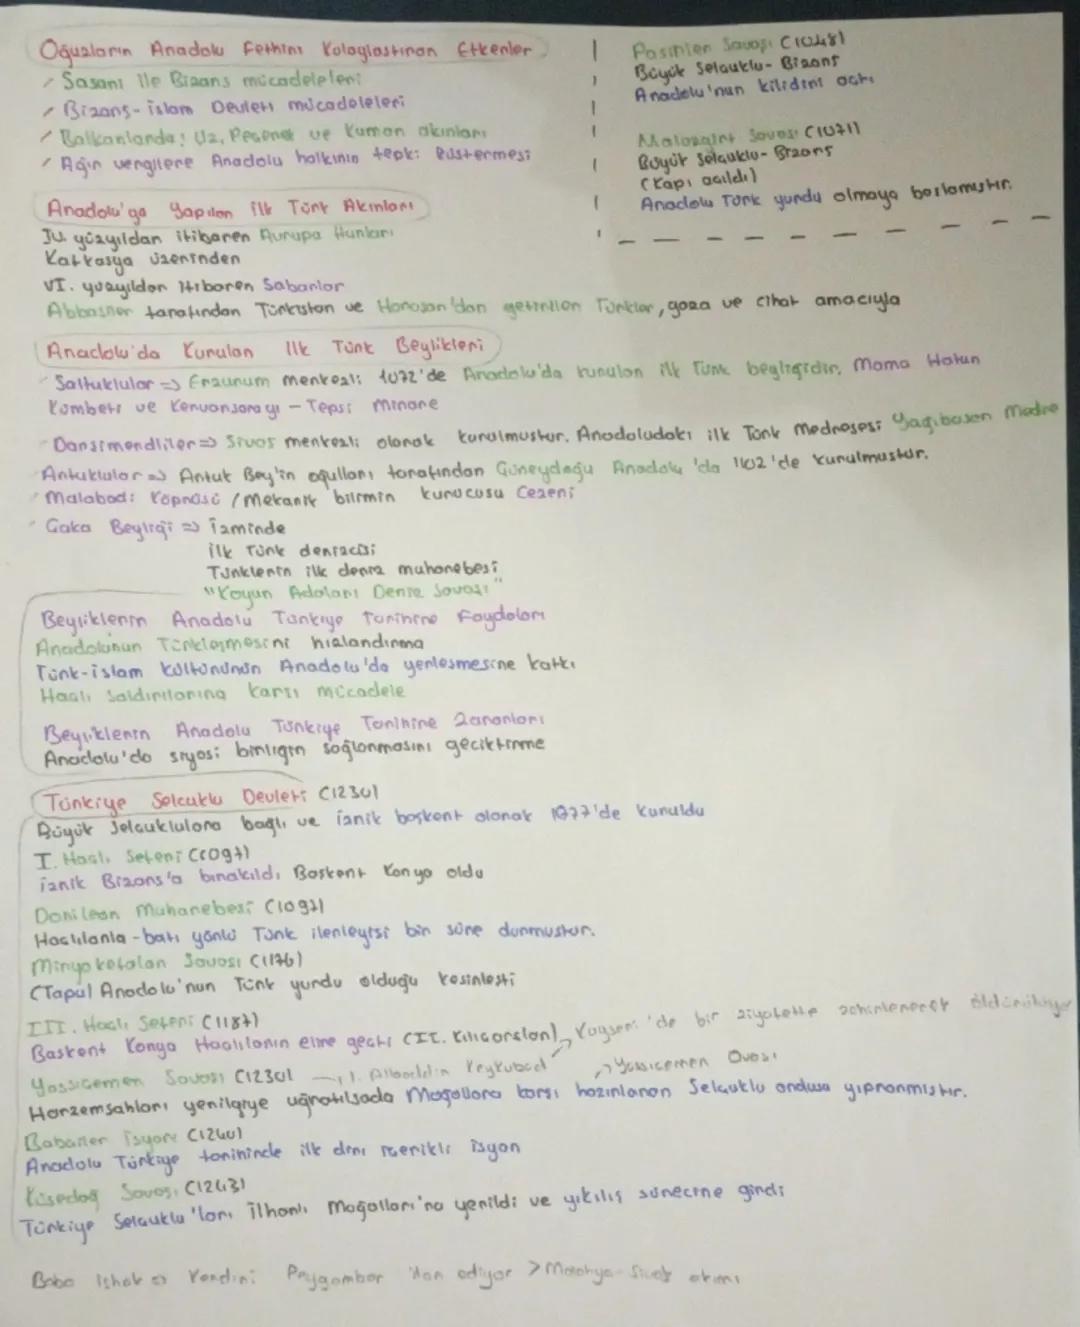 Oğuzların Anadolu Fethini Kolaylaştıran Etkenler
Sasani ile Bizans mücadeleleri
Bizans-İslam Devleti mücadeleleri
Balkanlarda; Uz, Peçenek ve Kuman akınları
Ağır vergilere Anadolu halkının tepki göstermesi
Pasinler Savaşı (1048)
Büyük Selçuklu-Bizans
Anadolu'nun kilidini açtı
Malazgirt Savaşı (1071)
Büyük Selçuklu-Bizans
(Kapı açıldı)
Anadolu Türk yurdu olmaya başlamıştır.
Anadolu'ya Yapılan İlk Türk Akınları
IV. yüzyıldan itibaren Avrupa Hunları
Kafkasya üzerinden
VI. yüzyıldan itibaren Sabarlar
Abbasiler tarafından Türkistan ve Horosan'dan getirilen Türkler, gaza ve cihat amacıyla
Anadolu'da Kurulan İlk Türk Beylikleri
Saltuklular => Erzurum merkezli 1072'de Anadolu'da kurulan ilk Türk beyliğidir. Mama Hatun
Kümbeti ve Kervansarayı - Tepsi Minare
Danişmendliler => Sivas merkezli olarak kurulmuştur. Anadoludaki ilk Türk Medresesi Yağıbasan Medre
Artuklular => Artuk Bey'in oğulları tarafından Güneydoğu Anadolu'da 1102'de kurulmuştur.
Malabadi Köprüsü / Mekanik bilimin kurucusu Cezeri
Çaka Beyliği => İzmirde
İlk Türk denizcisi
Türklerin ilk deniz muharebesi
"Koyun Adaları Deniz Savaşı"
Beyliklerin Anadolu Türkiye Tarihine Faydaları
Anadolunun Türkleşmesini hızlandırma
Türk-İslam kültürünün Anadolu'da yerleşmesine katkı
Haçlı Saldırılarına karşı mücadele
Beyliklerin Anadolu Türkiye Tarihine Zararları
Anadolu'da siyasi birliğin sağlanmasını geciktirme
Türkiye Selçuklu Devleti (1230)
Büyük Selçuklulara bağlı ve İznik başkent olarak 1077'de kuruldu
I. Haçlı Seferi (1097)
İznik Bizans'a bırakıldı Başkent Konya oldu
Dorileon Muharebesi (1097)
Haçlılarla - batı yönlü Türk ilerleyişi bir süre durmuştur.
Miryokefalon Savaşı (1176)
(Tapu) Anadolu'nun Türk yurdu olduğu kesinleşti
III. Haçlı Seferi (1187)
Başkent Konya Haçlıların eline geçti (II. Kılıçarslan)
Kayseri'de bir ziyafette zehirlenerek öldürülüyor
Yassıçemen Savaşı (1230) → I. Alaeddin Keykubad → Yassıçemen Ovası
Harzemşahları yenilgiye uğratılsada Moğollara karşı hazırlanan Selçuklu ordusu yıpranmıştır.
Babailer İsyanı (1240)
Anadolu Türkiye tarihinde ilk dini içerikli isyan
Kösedağ Savaşı (1243)
Türkiye Selçuklu'ları İlhanlı Moğolları'na yenildi ve yıkılış sürecine girdi
Baba İshak => Kendini Peygamber ilan ediyor > Malatya-Sivas